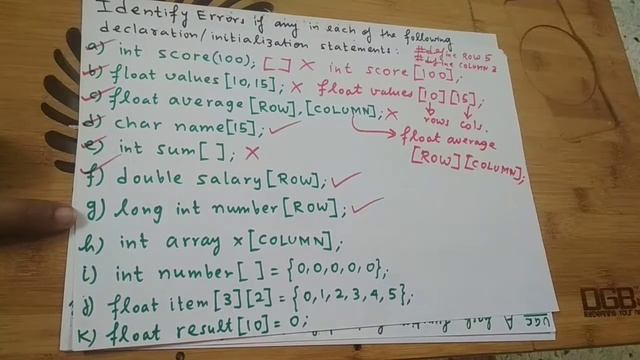 Identify Errors if any in each of the following
declaration/initialization statements:
#define ROW 5
#define COLUMN 2
a) int score(100); [ ] X int score [100];
b) float values [10,15]; X float values [10][15];
rows cols.
c) float average [ROW],[COLUMN]; X
float average
[ROW][COLUMN];
d) char name[15]; ✓
e) int sum[ ]; X
f) double salary[ROW]; ✓
g) long int number[ROW]; ✓
h) int array x[COLUMN];
i) int number[ ] = {0,0,0,0,0};
j) float item[3][2] = {0,1,2,3,4,5};
K) float result[10] = 0;
DGB